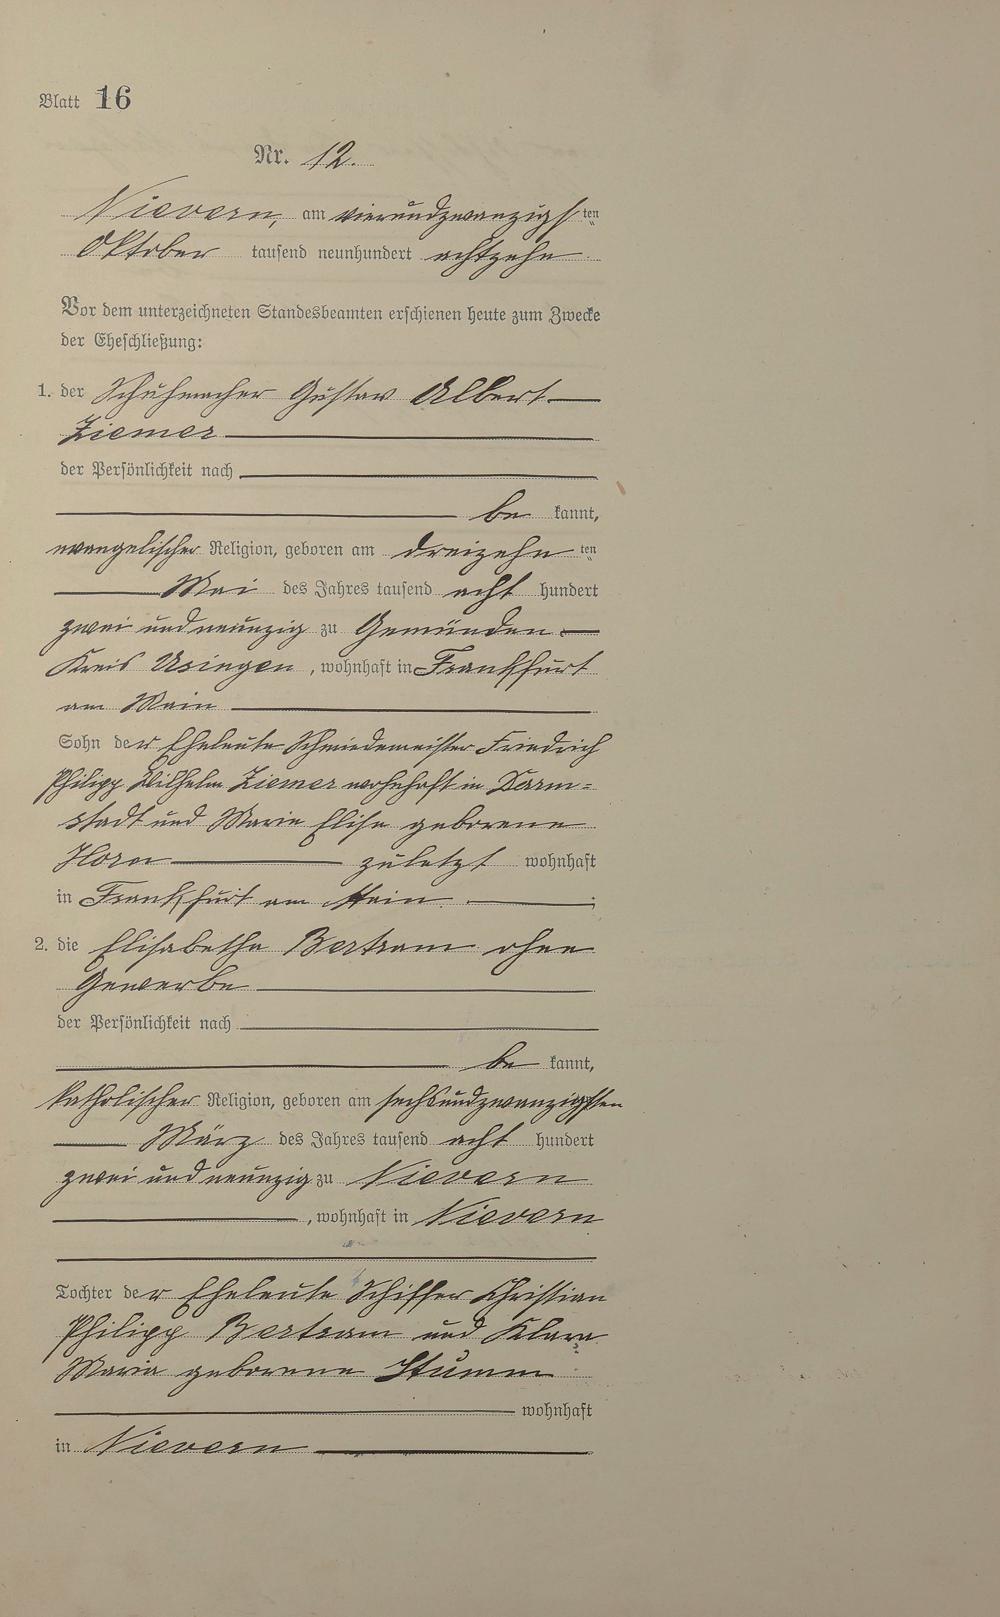 Blatt 16
Nr. 12.
Nievern, am vierundzwanzigsten
Oktober tausend neunhundert achtzehn
Vor dem unterzeichneten Standesbeamten erschienen heute zum Zwecke
der Eheschließung:
1. der Schuhmacher Gustav Albert
Ziemer
der Persönlichkeit nach
be kannt,
evangelischer Religion, geboren am dreizehnten
Mai des Jahres tausend acht hundert
zwei und neunzig zu Gemünden
Kreis Usingen, wohnhaft in Frankfurt
am Main
Sohn der Eheleute Schmiedemeister Friedrich
Philipp Wilhelm Ziemer wohnhaft in Darm=
stadt und Marie Elise geborene
Horn zuletzt wohnhaft
in Frankfurt am Main ;
2. die Elisabetha Bertram ohne
Gewerbe
der Persönlichkeit nach
be kannt,
katholischer Religion, geboren am sechsundzwanzigsten
März des Jahres tausend acht hundert
zwei und neunzig zu Nievern
, wohnhaft in Nievern
Tochter der Eheleute Schiffer Christian
Philipp Bertram und Klara
Maria geborene Stumm
wohnhaft
in Nievern